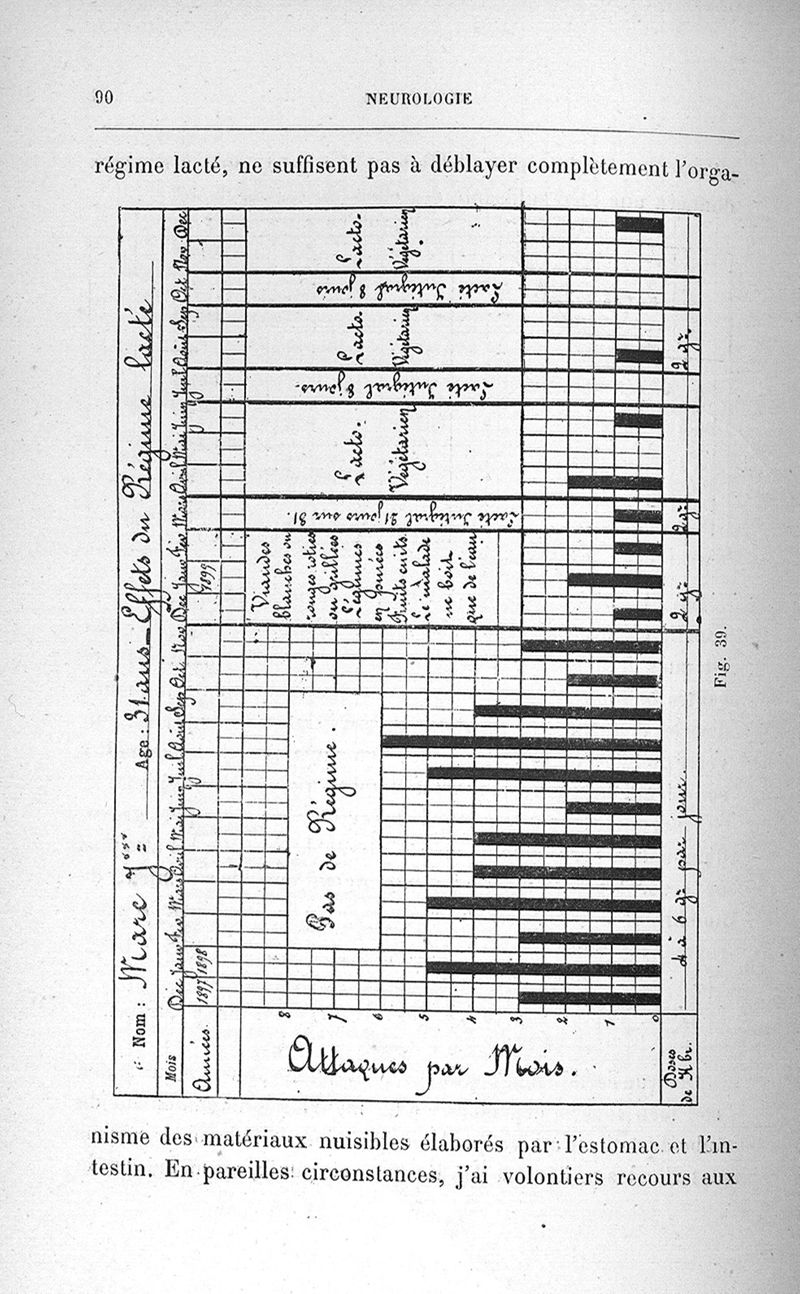 90
NEUROLOGIE
régime lacté, ne suffisent pas à déblayer complètement l'orga-
Nom : Marc
Age : 31 ans _ Effets du Régime lacté
Mois Déc Janv Fév Mars Avril Mai Juin Juil Août Sep Oct Nov Déc Janv Fév Mars Avril Mai Juin Juil Août Sep Oct Nov Déc
Années. 1897 1898 1899
Attaques par Mois.
8
7
6
5
4
3
2
1
0
Pas de Régime.
Viandes
blanches ou
rouges roties
ou grillées
Légumes
en purées
Fruits cuits.
Le malade
ne boit
que de l'eau
Lacté Intégral 21 jours sur 31.
Lacto-
Végétarien
Lacté Intégral 8 jours.
Lacto-
Végétarien
Lacté Intégral 8 jours
Lacto-
Végétarien.
Doses
de KBr.
4 à 6 gr par jour.
2 gr
2 gr
2 gr
Fig. 39.
nisme des matériaux nuisibles élaborés par l'estomac et l'in-
testin. En pareilles circonstances, j'ai volontiers recours aux